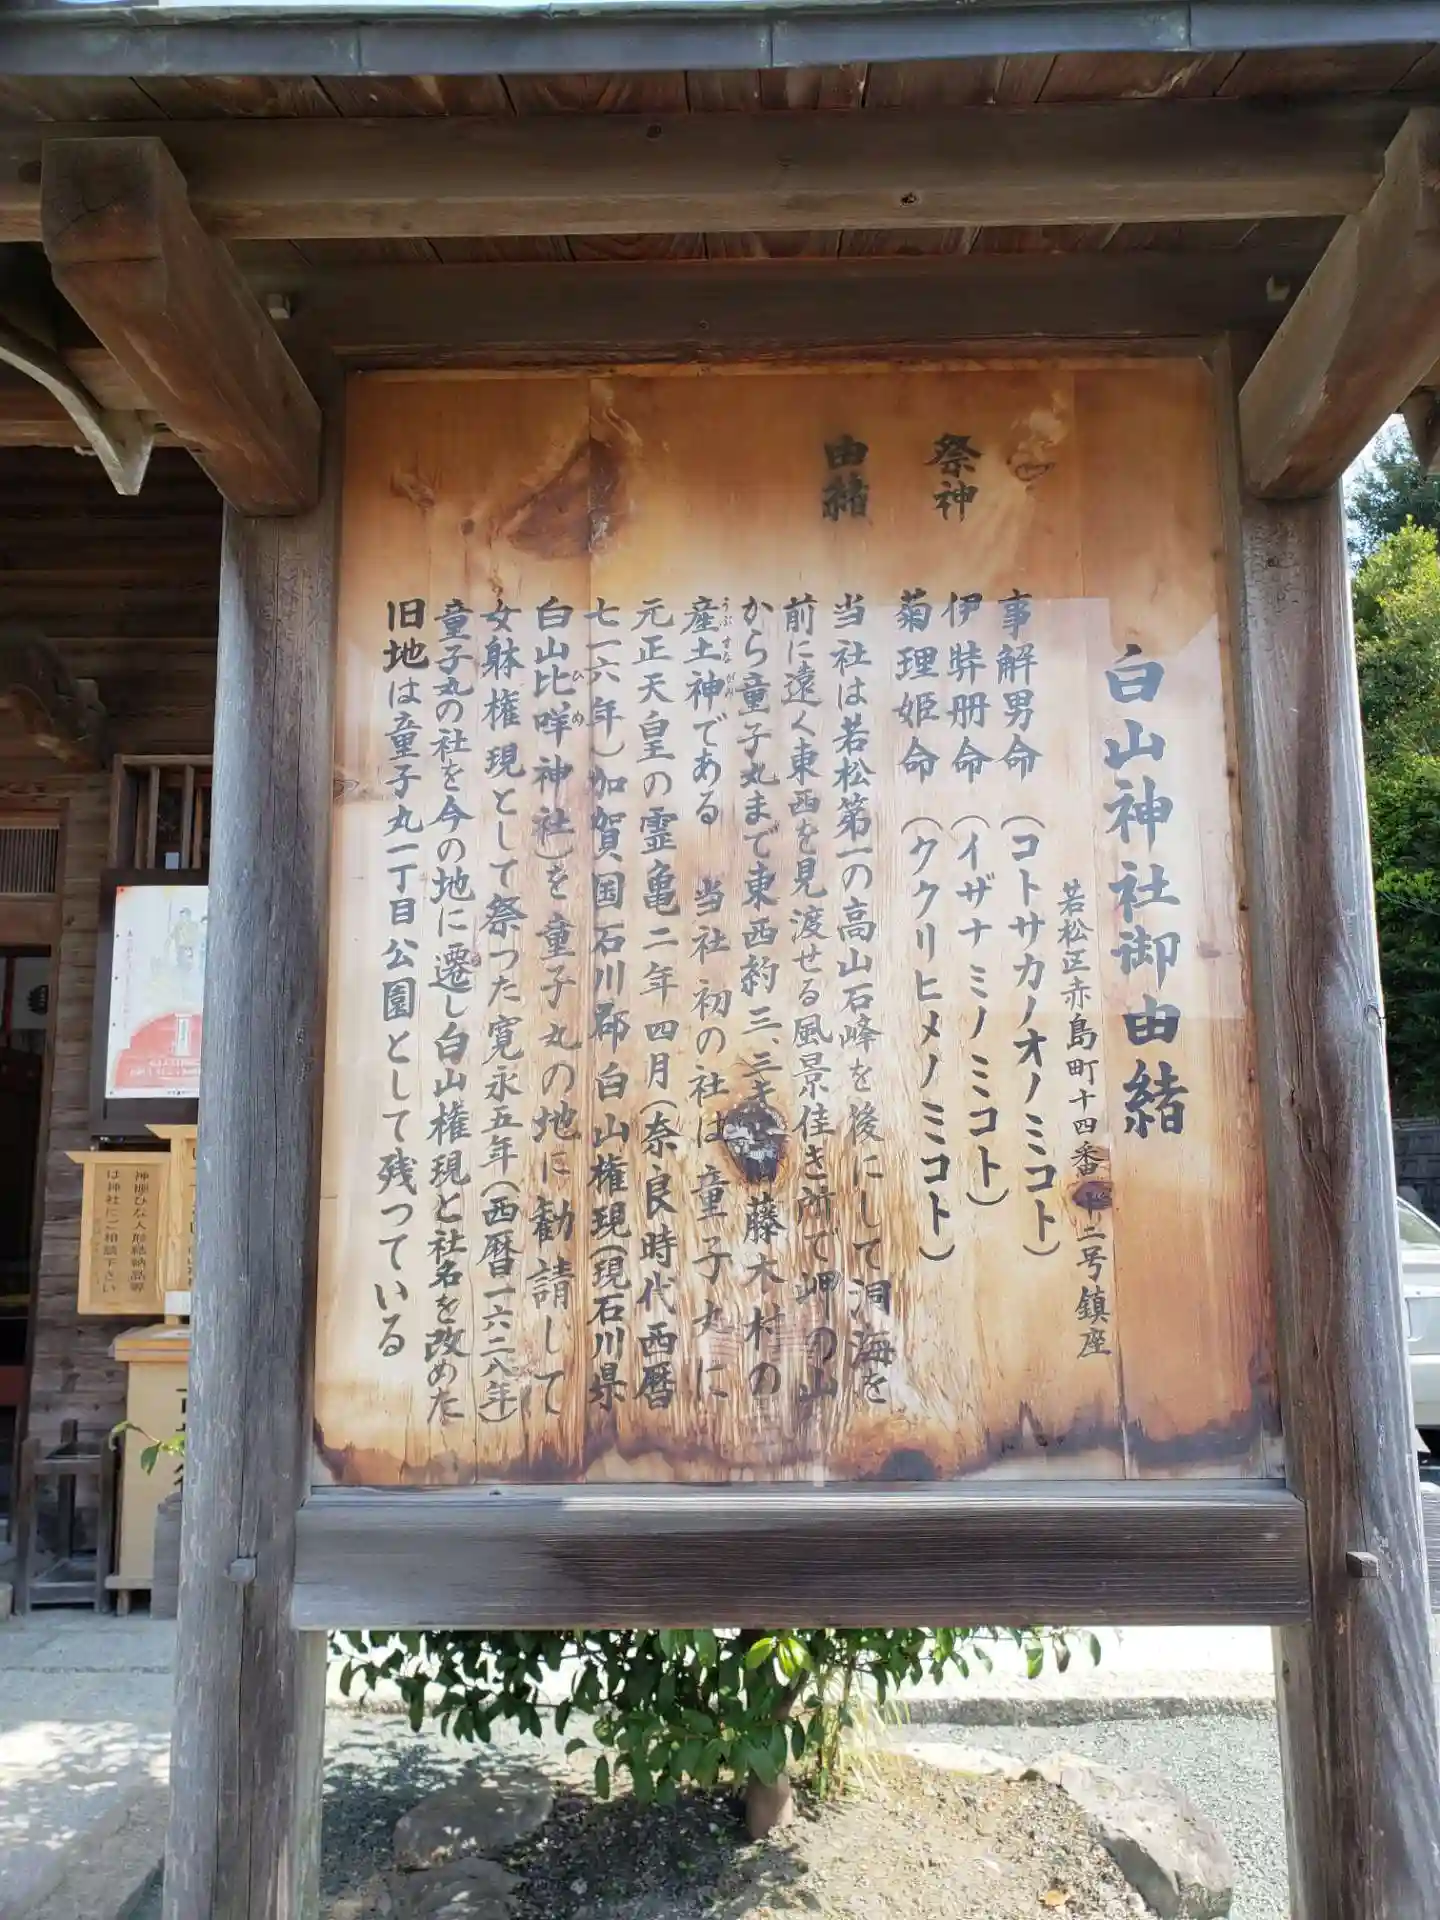 白山神社御由緒
若松区赤島町十四番 二号鎮座
祭神
事解男命（コトサカノオノミコト）
伊弉册命（イザナミノミコト）
菊理姫命（ククリヒメノミコト）
由緒
当社は若松第一の高山石峰を後にして洞海を
前に遠く東西を見渡せる風景佳き所で岬の山
から童子丸まで東西約三、三キ 藤木村の
産土神である 当社初の社は童子丸に
うぶすながみ
元正天皇の霊亀二年四月（奈良時代西暦
七一六年）加賀国石川郡白山権現（現石川県
白山比咩神社）を童子丸の地に勧請して
ひめ
女躰権現として祭つた寛永五年（西暦一六二八年）
童子丸の社を今の地に遷し白山権現と社名を改めた
旧地は童子丸一丁目公園として残つている
神棚ひな人形結納品等
は神社にご相談下さい